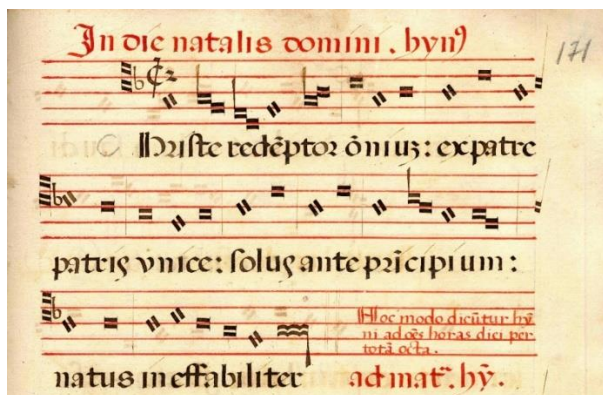 In die natalis domini. hyn9
171
Christe redẽptor õniuz: ex patre
patris vnice: solus ante prĩcipium:
Hoc modo dicũtur hỹ
ni ad oẽs horas dici per
totã octa.
natus ineffabiliter ad matr̃. hỹ.